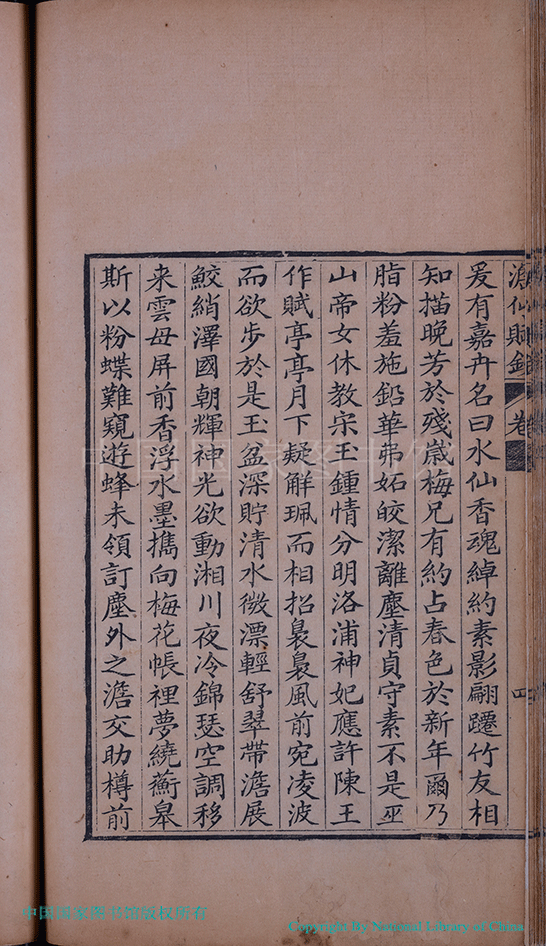 賦鈔 卷
爰有嘉卉名曰水仙香魂綽約素影翩躚竹友相
知描晚芳於殘歲梅兄有約占春色於新年爾乃
脂粉羞施鉛華弗妬皎潔離塵清貞守素不是巫
山帝女休教宋玉鍾情分明洛浦神妃應許陳王
作賦亭亭月下疑解珮而相招裊裊風前宛凌波
而欲步於是玉盆深貯清水微漂輕舒翠帶澹展
鮫綃澤國朝輝神光欲動湘川夜冷錦瑟空調移
来雲母屏前香浮水墨攜向梅花帳裡夢繞蘅皋
斯以粉蝶難窺遊蜂未領訂塵外之澹交助樽前
中国国家图书馆
中国国家图书馆版权所有
Copyright By National Library of China